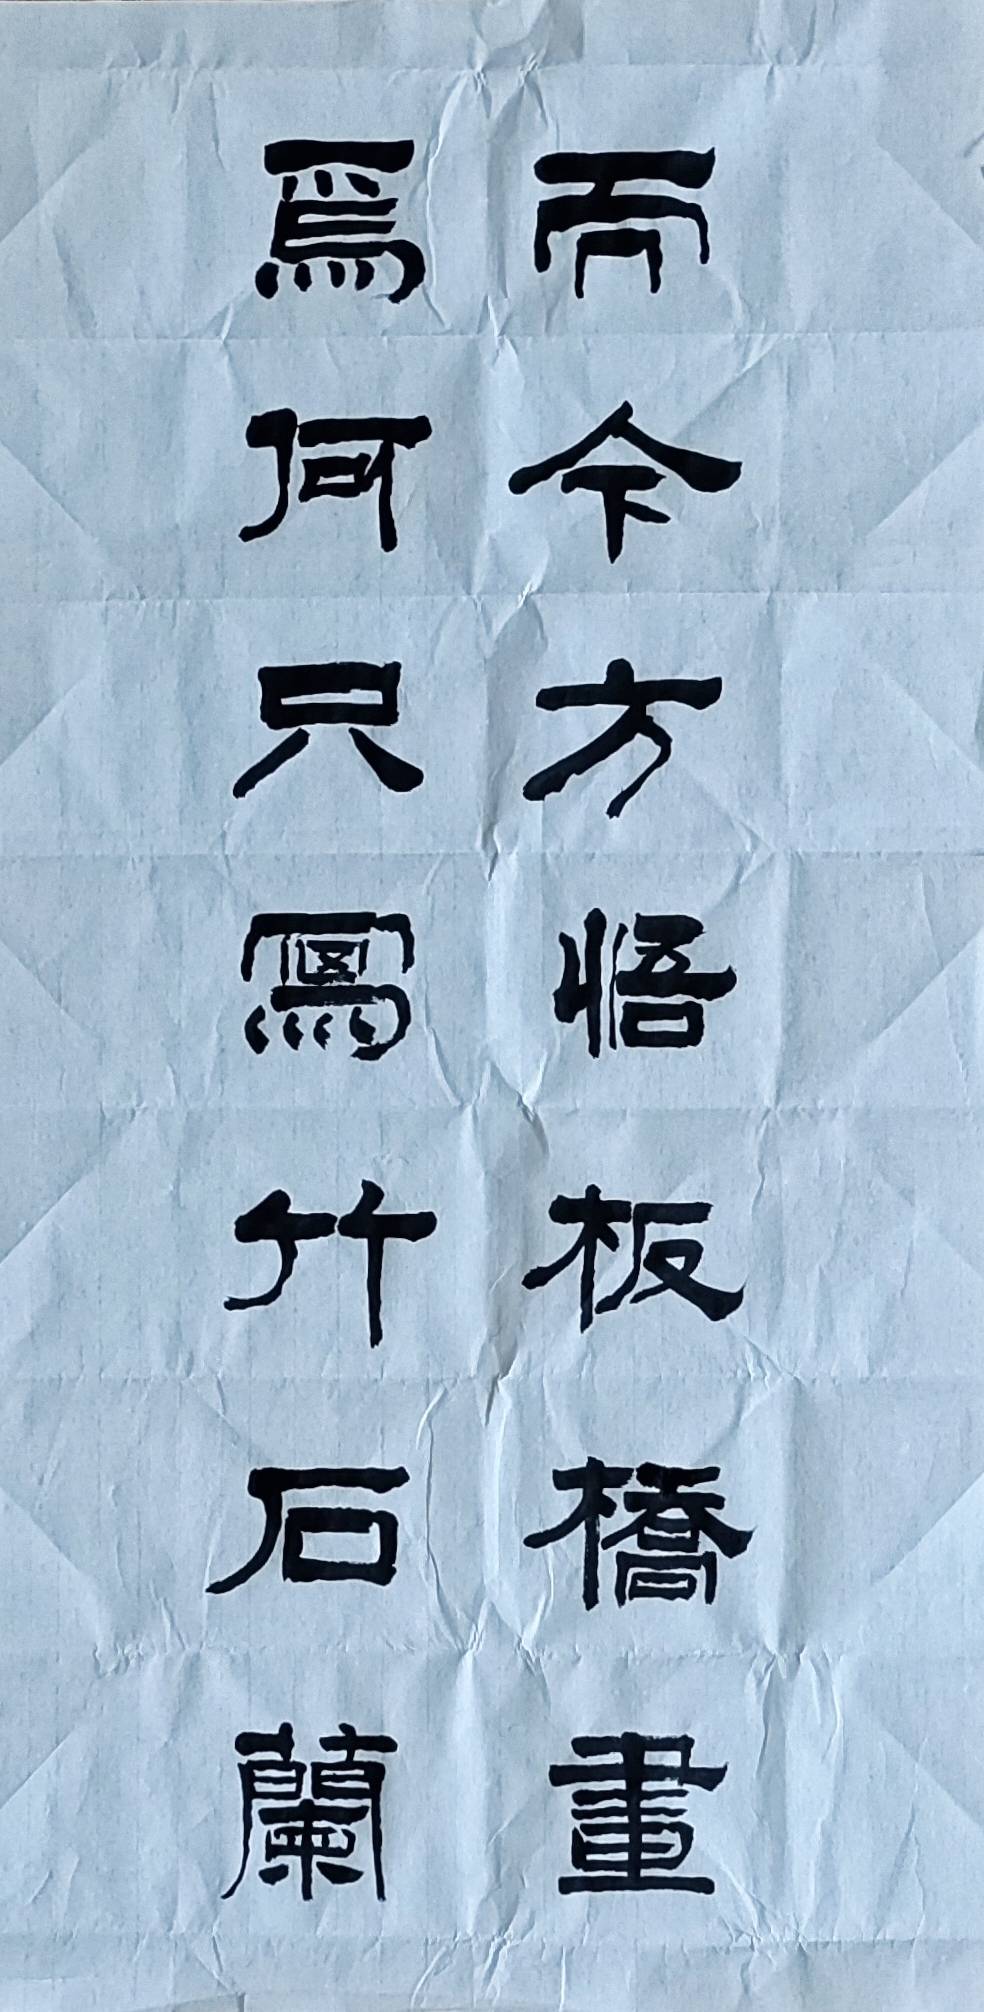 而今方悟板橋畫
爲何只寫竹石蘭